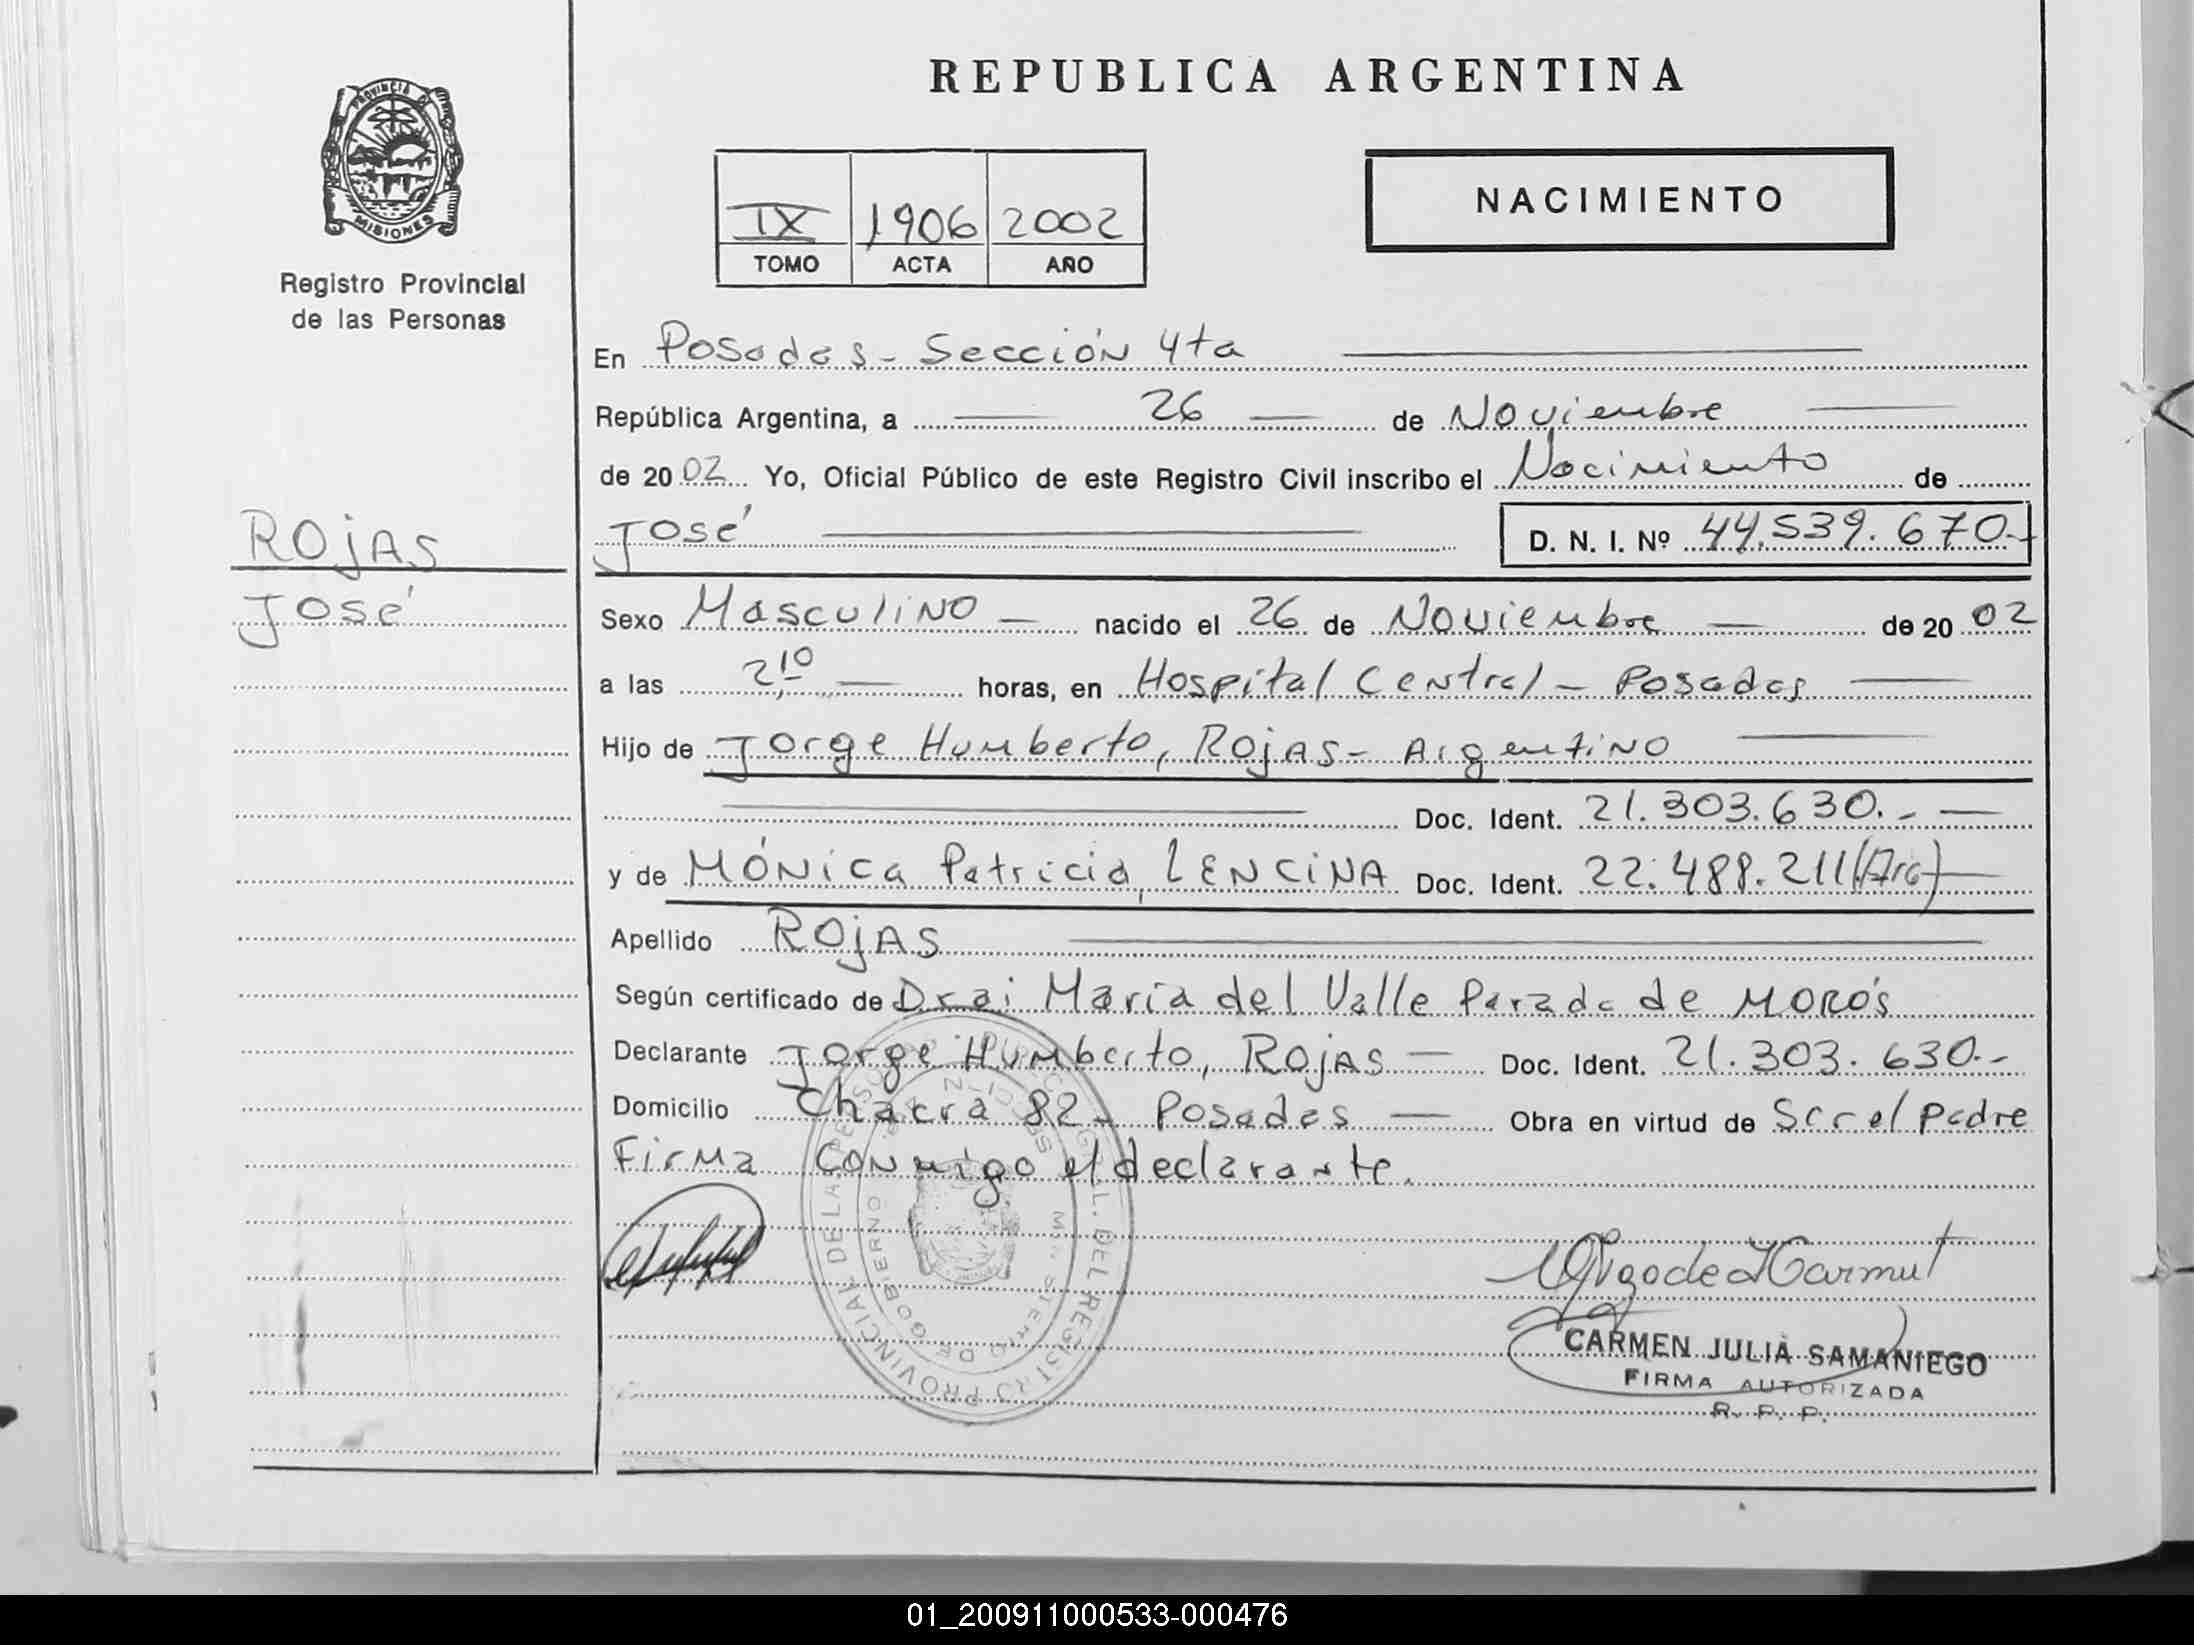 REPUBLICA ARGENTINA
PROVINCIA DE
MISIONES
Registro Provincial
de las Personas
IX 1906 2002
TOMO ACTA AÑO
NACIMIENTO
En Posadas - Sección 4ta
República Argentina, a 26 de Noviembre
de 2002 Yo, Oficial Público de este Registro Civil inscribo el Nacimiento de
José D. N. I. Nº 44.539.670.-
ROjAS
José
Sexo Masculino nacido el 26 de Noviembre de 2002
a las 2,10 horas, en Hospital Central - Posadas
Hijo de Jorge Humberto, ROjAS - Argentino
Doc. Ident. 21.303.630.-
y de MÓNiCa Patricia, LENCiNA Doc. Ident. 22.488.211 (Arg)
Apellido ROjAS
Según certificado de Dra: María del Valle Parada de MORÓS
Declarante Jorge Humberto, ROjAS Doc. Ident. 21.303.630.-
Domicilio Chacra 82 - Posadas Obra en virtud de Ser el padre
Firma conmigo el declarante.
CARMEN JULIA SAMANIEGO
FIRMA AUTORIZADA
R. P. P.
01_200911000533-000476